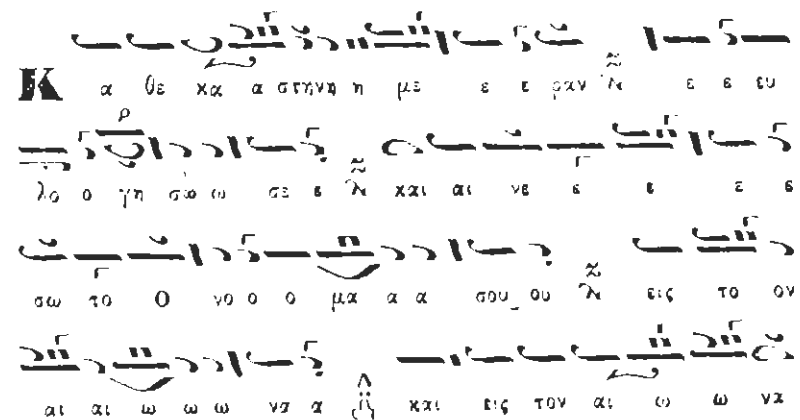 Κ α θε κα α στηνη η με ε ε ραν ε ε ευ
λο ο γη σω ω σε ε και αι νε ε ε ε ε
σω το Ο νο ο ο μα α α σου ου εις το ον
αι αι ω ω ω να α και εις τον αι ω ω να